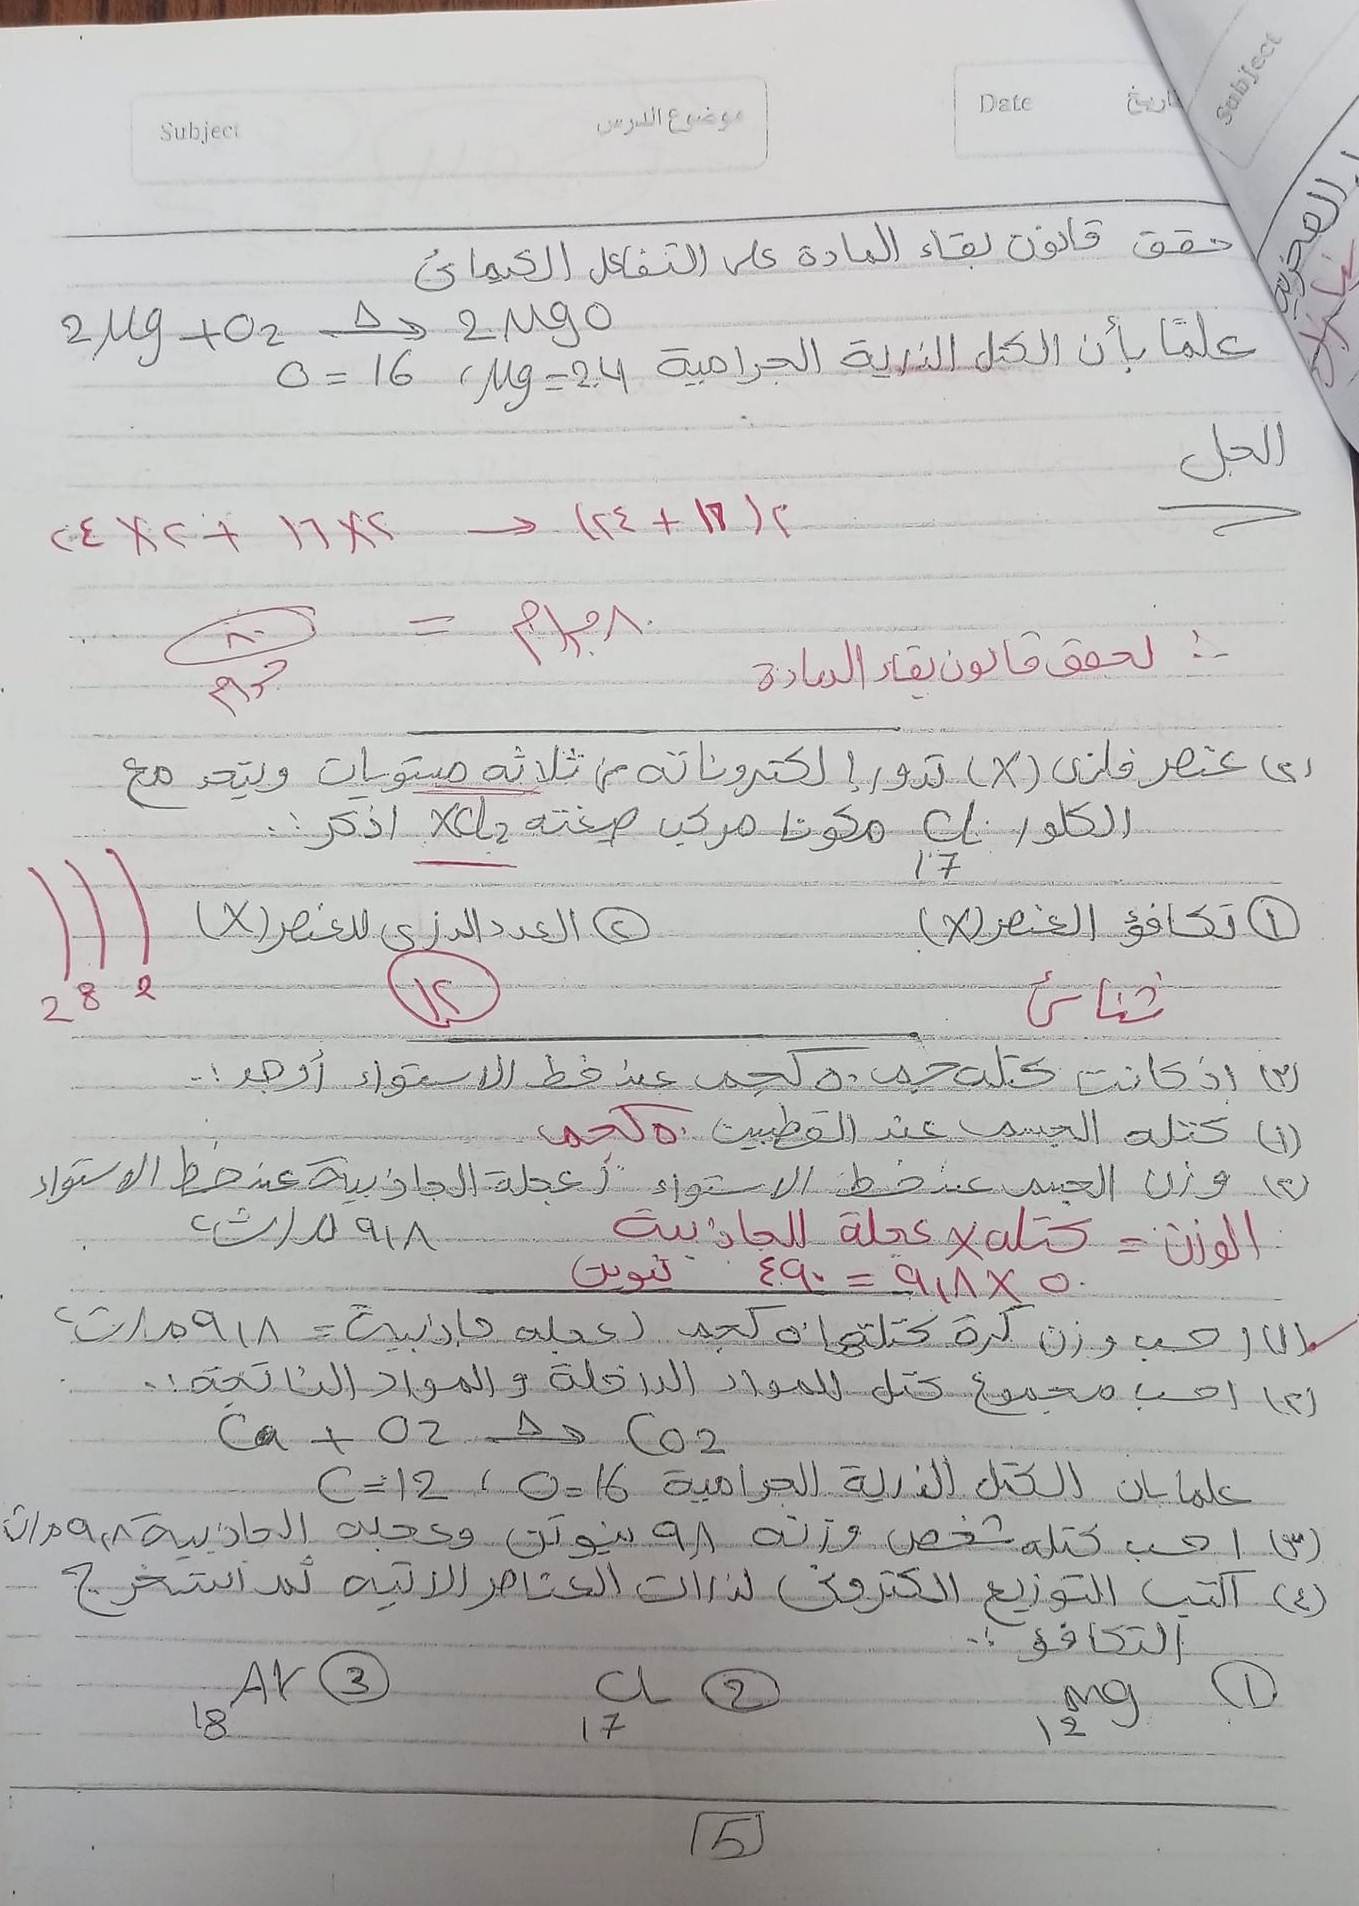 Subject موضوع الدرس Date تاريخ
Subject
حقق قانون بقاء المادة على التفاعل الكيمائى
2Mg + O2 Δ→ 2MgO
علمًا بأن الكتل الذرية الجرامية Mg=24 ، O=16
الحل
٢٤×٢ + ١٦×٢ → (٢٤ + ١٦)٢
٨٠ جرام = ٨٠ جرام
∴ تحقق قانون بقاء المادة
(٢) عنصر فلزى (X) تدور إلكتروناته في ثلاثه مستويات ويتحد مع
الكلور Cl 17 مكونا مركب صيغته XCl2 اذكر :.
① تكافؤ العنصر (X) ② العدد الذرى للعنصر (X)
ثنائى ١٢ 2 8 2
(٣) اذ كانت كتله جسم ٥٠ كجم عند خط الاستواء أوجد :.
(١) كتله الجسم عند القطبين ٥٠ كجم
(٢) وزن الجسم عند خط الاستواء (عجلة الجاذبية عند خط الاستواء
٩,٨ م/ث٢
الوزن = كتله × عجلة الجاذبية
٥٠ × ٩,٨ = ٤٩٠ نيوتن
(١) احسب وزن كرة كتلتها ٥٠ كجم (عجله جاذبية = ٩,٨ م/ث٢
(٢) احسب مجموع كتل المواد الداخلة والمواد الناتجة :.
Ca + O2 Δ→ CO2
علما بان الكتل الذرية الجرامية C=12 ، O=16
(٣) احسب كتله شخص وزنه ٩٨ نيوتن وعجله الجاذبية ٩,٨ م/ث
(٤) اكتب التوزيع الكترونى لذرات العناصر الاتيه ثم استخرج
التكافؤ :.
① Mg 12 ② Cl 17 ③ Ar 18
5